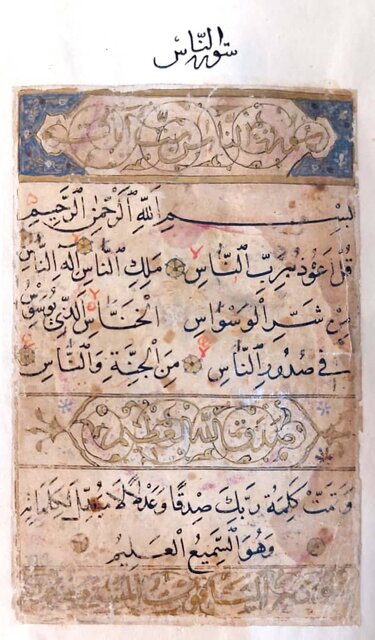 سورة النَّاس
سورة الناس
بِسْمِ اللَّهِ الرَّحْمَنِ الرَّحِيمِ
قُلْ أَعُوذُ بِرَبِّ النَّاسِ مَلِكِ النَّاسِ إِلَهِ النَّاسِ
مِنْ شَرِّ الْوَسْوَاسِ الْخَنَّاسِ الَّذِي يُوَسْوِسُ
فِي صُدُورِ النَّاسِ مِنَ الْجِنَّةِ وَالنَّاسِ
صدق الله العظيم
وَتَمَّتْ كَلِمَةُ رَبِّكَ صِدْقًا وَعَدْلًا لَا مُبَدِّلَ لِكَلِمَاتِهِ
وَهُوَ السَّمِيعُ الْعَلِيمُ